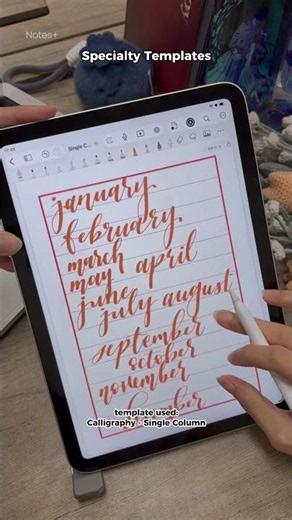 Notes+
Specialty Templates
17:49
Single C...
january
february
march
may april
june
july august
september
october
november
december
template used:
Calligraphy - Single Column